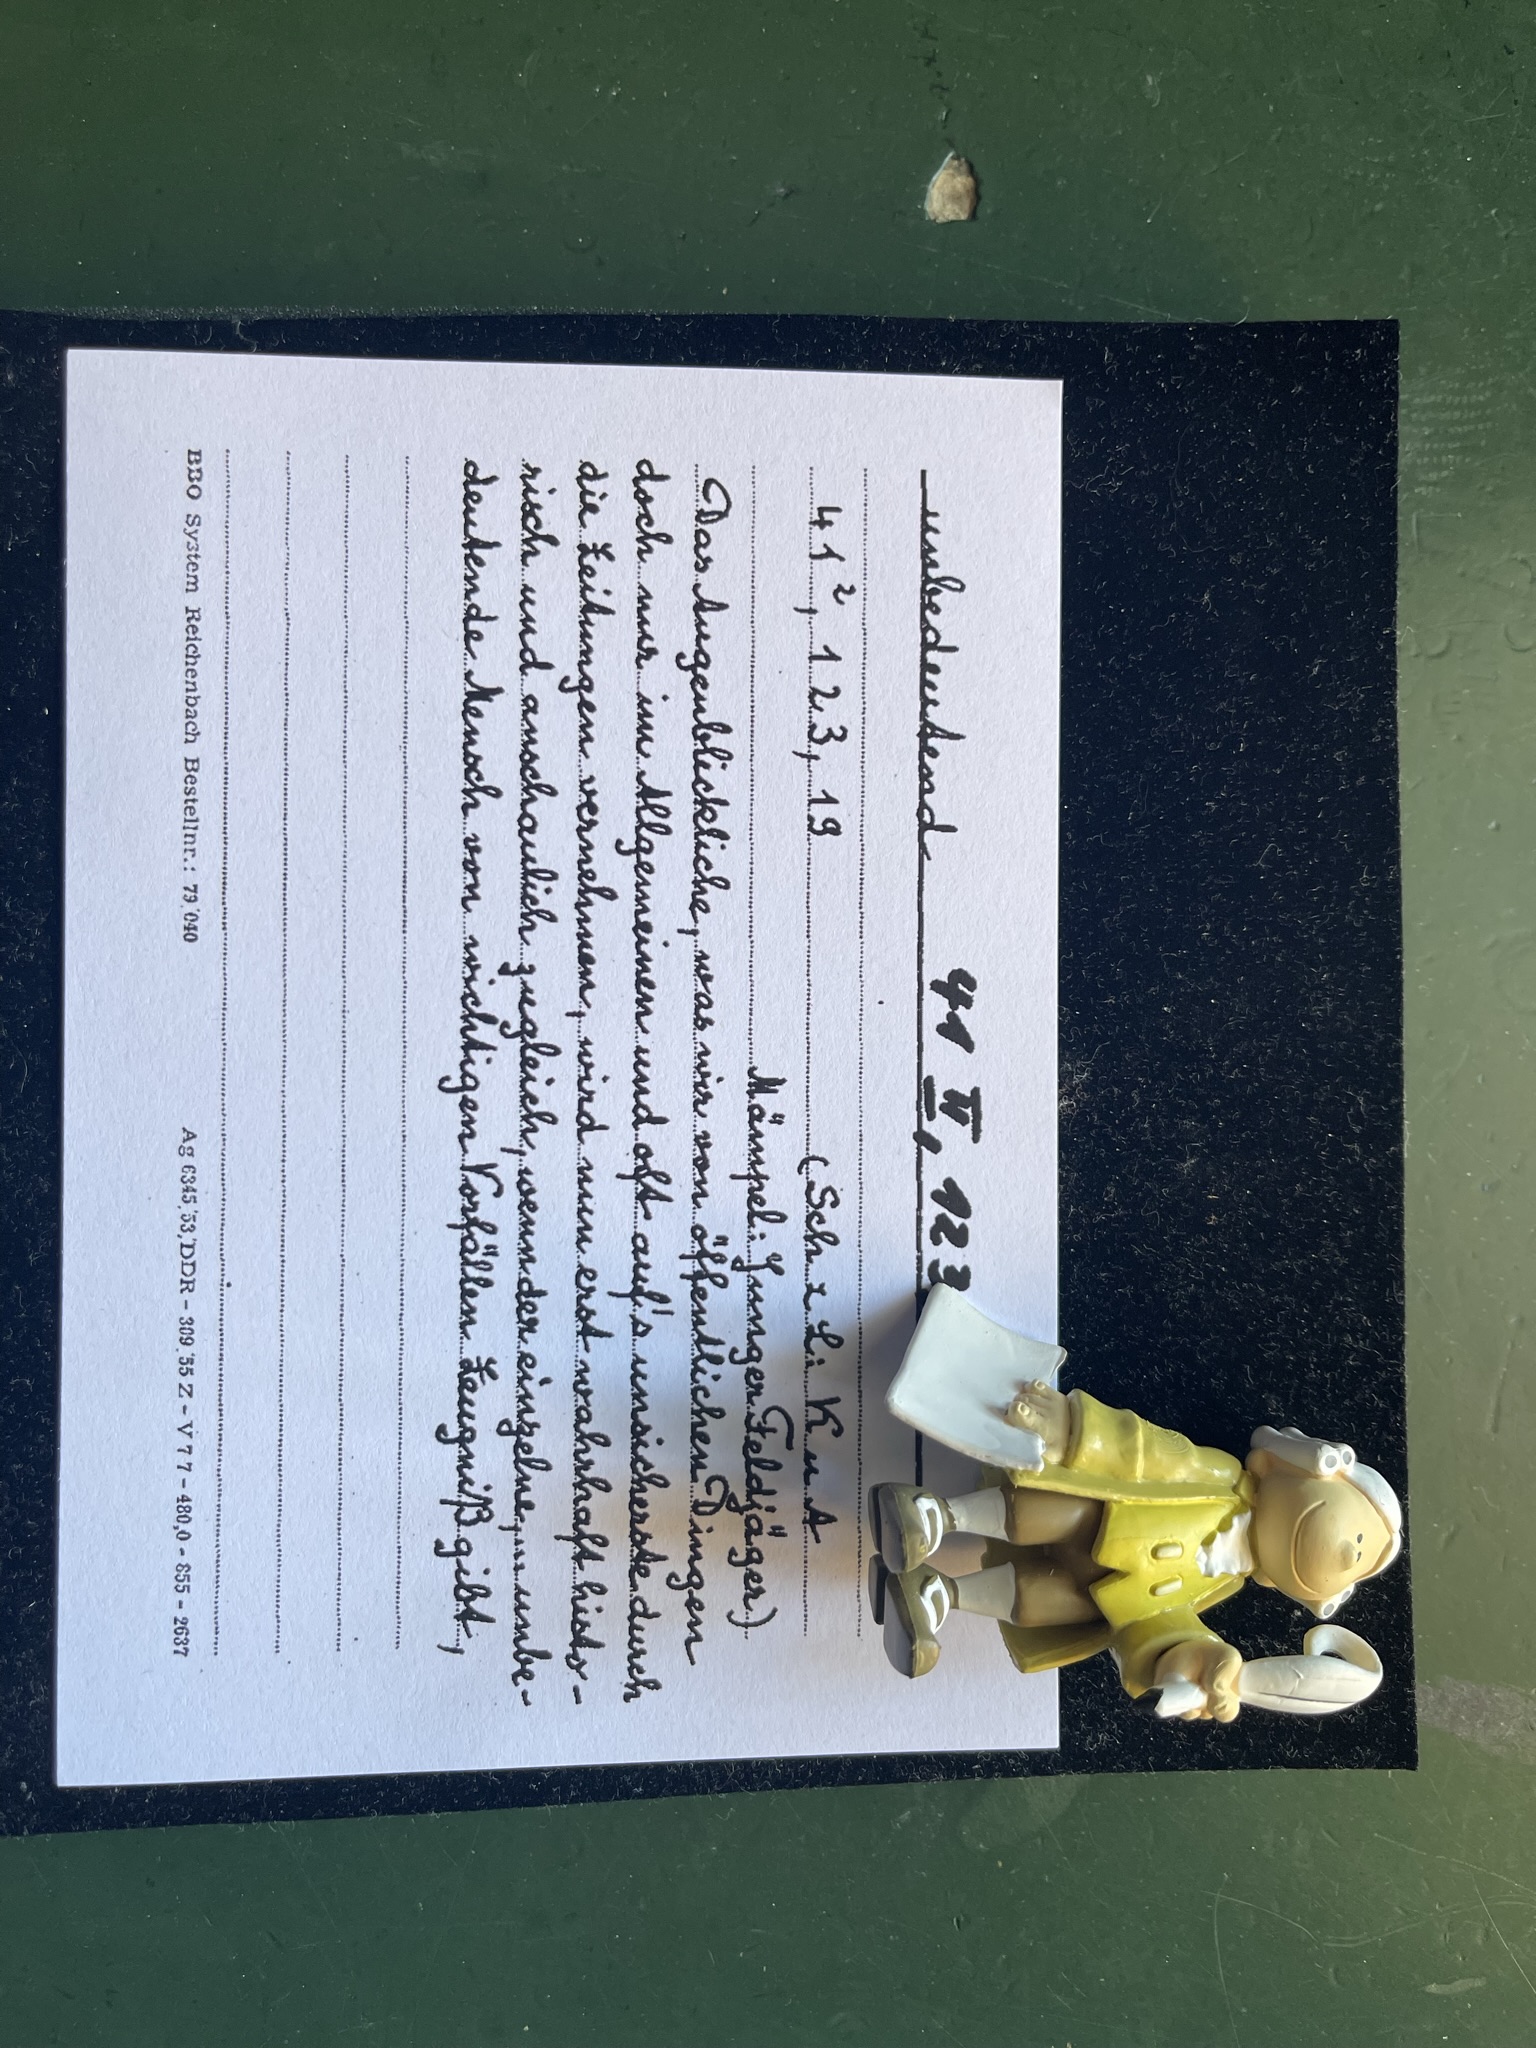 unbedeutend 41 IV, 123
41², 123, 19
(Sch z L: K u A
Mämpel: Junger Feldjäger)
Das Augenblickliche, was wir von öffentlichen Dingen
doch nur im Allgemeinen und oft auf's unsicherste durch
die Zeitungen vernehmen, wird nun erst wahrhaft histo-
risch und anschaulich zugleich, wenn der einzelne, unbe-
deutende Mensch von wichtigen Vorfällen Zeugniß gibt,
BBO System Reichenbach Bestellnr.: 79/040 Ag 6345/53/DDR – 309/55 Z – V 7 7 – 480,0 – 855 – 2637